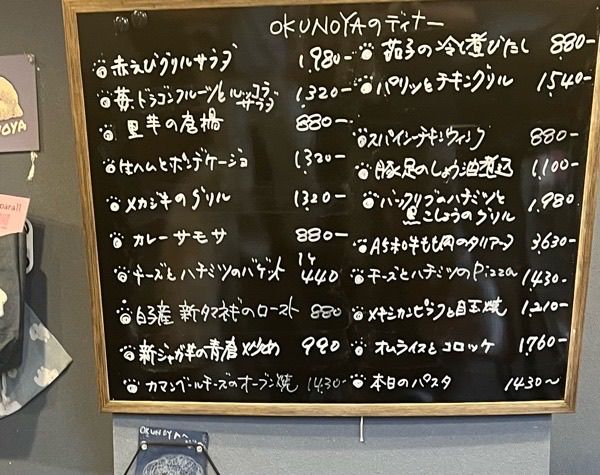 OKUNOYAのディナー
赤えびグリルサラダ 1,980-
苺、ドラゴンフルーツとルッコラ
サラダ 1,320-
里芋の唐揚 880-
生ハムとポンデケージョ 1,320-
メカジキのグリル 1,320-
カレーサモサ 880-
チーズとハチミツのバゲット 1ヶ 440
自家産 新タマネギのロースト 880
新ジャガ芋の青唐炒め 990
カマンベールチーズのオーブン焼 1430-
茄子の冷と煮びたし 880-
パリッとチキングリル 1,540-
スパイシーチキンウィング 880-
豚足のしょう油煮込 1,100-
バックリブのハチミツと
黒こしょうのグリル 1,980
A5和牛もも肉のタリアータ 3,630-
チーズとハチミツのPizza 1430-
メキシカンピラフと目玉焼 1,210-
オムライスとコロッケ 1,760-
本日のパスタ 1430〜
OKUNOYAへ